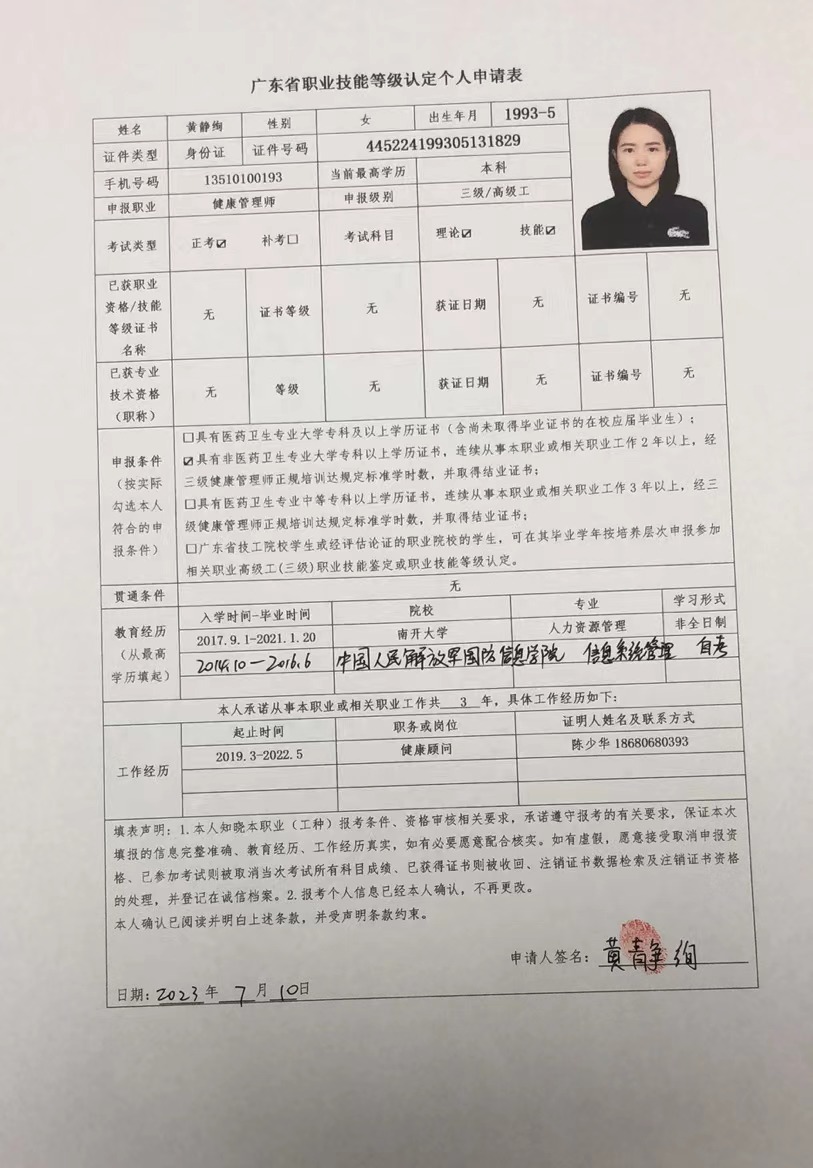 广东省职业技能等级认定个人申请表
姓名 黄静绚 性别 女 出生年月 1993-5
证件类型 身份证 证件号码 445224199305131829
手机号码 13510100193 当前最高学历 本科
申报职业 健康管理师 申报级别 三级/高级工
考试类型 正考☑ 补考□ 考试科目 理论☑ 技能☑
已获职业
资格/技能
等级证书
名称
无 证书等级 无 获证日期 无 证书编号 无
已获专业
技术资格
(职称)
无 等级 无 获证日期 无 证书编号 无
申报条件
(按实际
勾选本人
符合的申
报条件)
□具有医药卫生专业大学专科及以上学历证书（含尚未取得毕业证书的在校应届毕业生）；
☑具有非医药卫生专业大学专科以上学历证书，连续从事本职业或相关职业工作2年以上，经
三级健康管理师正规培训达规定标准学时数，并取得结业证书；
□具有医药卫生专业中等专科以上学历证书，连续从事本职业或相关职业工作3年以上，经三
级健康管理师正规培训达规定标准学时数，并取得结业证书；
□广东省技工院校学生或经评估论证的职业院校的学生，可在其毕业学年按培养层次申报参加
相关职业高级工(三级)职业技能鉴定或职业技能等级认定。
贯通条件 无
教育经历
(从最高
学历填起)
入学时间-毕业时间 院校 专业 学习形式
2017.9.1-2021.1.20 南开大学 人力资源管理 非全日制
2014.10—2016.6 中国人民解放军国防信息学院 信息系统管理 自考
本人承诺从事本职业或相关职业工作共 3 年，具体工作经历如下：
工作经历
起止时间 职务或岗位 证明人姓名及联系方式
2019.3-2022.5 健康顾问 陈少华 18680680393
填表声明：1.本人知晓本职业（工种）报考条件、资格审核相关要求，承诺遵守报考的有关要求，保证本次
填报的信息完整准确、教育经历、工作经历真实，如有必要愿意配合核实。如有虚假，愿意接受取消申报资
格、已参加考试则被取消当次考试所有科目成绩、已获得证书则被收回、注销证书数据检索及注销证书资格
的处理，并登记在诚信档案。2.报考个人信息已经本人确认，不再更改。
本人确认已阅读并明白上述条款，并受声明条款约束。
申请人签名：黄静绚
日期：2023年 7 月 10日